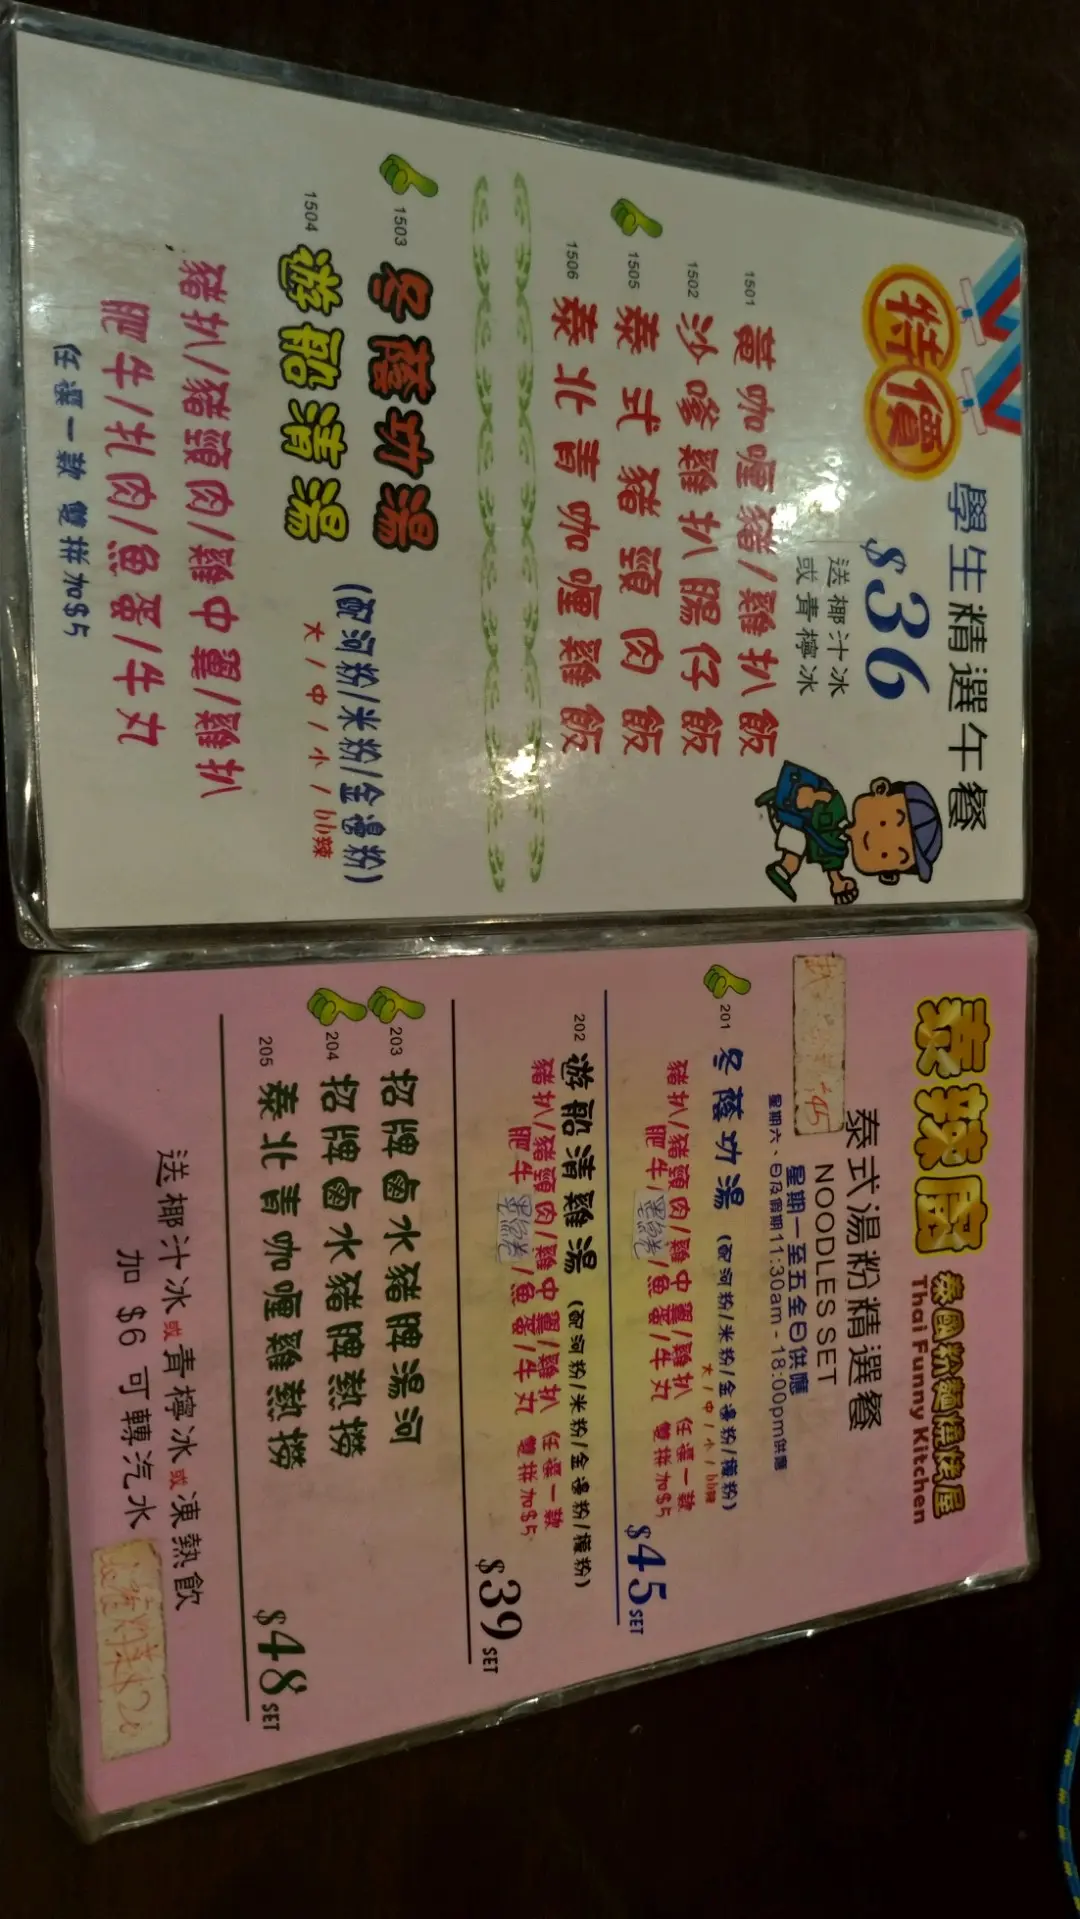 特價
學生精選午餐
$36
送椰汁冰
或青檸冰
1501 黃咖喱豬/雞扒飯
1502 沙嗲雞扒腸仔飯
1505 泰式豬頸肉飯
1506 泰北青咖喱雞飯
1503 冬蔭功湯
1504 遊船清湯
(配河粉/米粉/金邊粉)
大/中/小/bb辣
豬扒/豬頸肉/雞中翼/雞扒
肥牛/扎肉/魚蛋/牛丸
任選一款 雙拼加$5
泰辣屋
泰國粉麵燒烤屋
Thai Funny Kitchen
泰式湯粉精選餐
NOODLES SET
星期一至五全日供應
星期六、日及假期11:30am-18:00pm供應
45
201 冬蔭功湯 (配河粉/米粉/金邊粉/檬粉)
大/中/小/bb辣
豬扒/豬頸肉/雞中翼/雞扒 任選一款
肥牛/墨魚卷/魚蛋/牛丸 雙拼加$5
$45 SET
202 遊船清雞湯 (配河粉/米粉/金邊粉/檬粉)
豬扒/豬頸肉/雞中翼/雞扒 任選一款
肥牛/墨魚卷/魚蛋/牛丸 雙拼加$5
$39 SET
203 招牌鹵水豬脾湯河
204 招牌鹵水豬脾熱撈
205 泰北青咖喱雞熱撈
$48 SET
送椰汁冰或青檸冰或凍熱飲
加 $6 可轉汽水